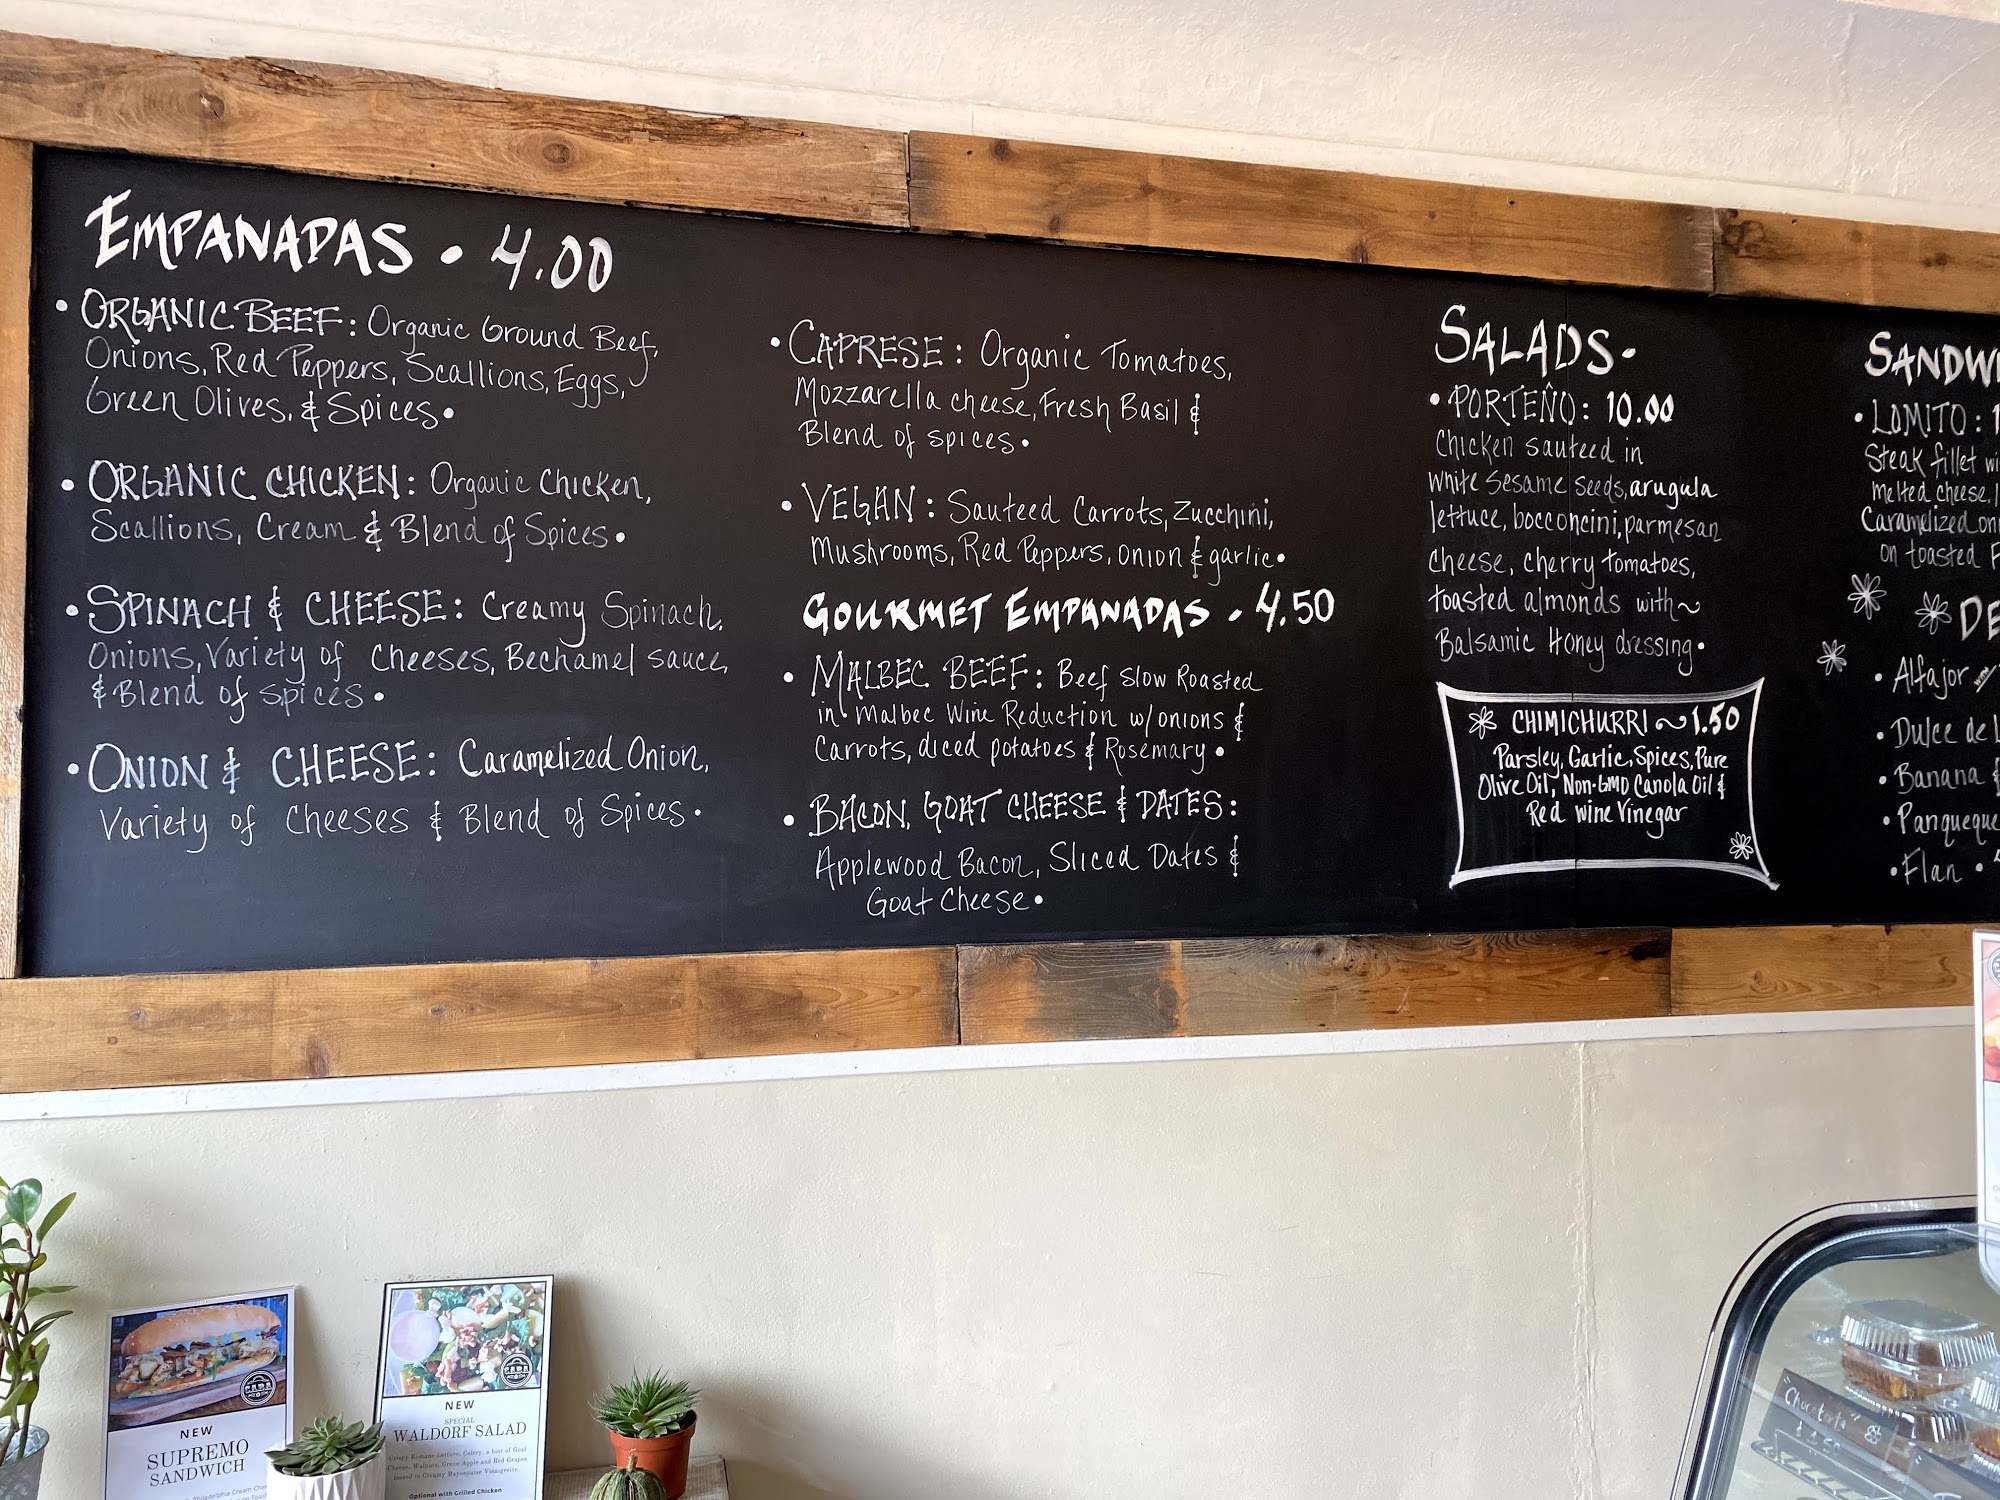 EMPANADAS • 4.00
• ORGANIC BEEF: Organic Ground Beef,
Onions, Red Peppers, Scallions, Eggs,
Green Olives, & Spices •
• ORGANIC CHICKEN: Organic Chicken,
Scallions, Cream & Blend of Spices •
• SPINACH & CHEESE: Creamy Spinach,
Onions, Variety of Cheeses, Bechamel sauce,
& Blend of Spices •
• ONION & CHEESE: Caramelized Onion,
Variety of Cheeses & Blend of Spices •
• CAPRESE: Organic Tomatoes,
Mozzarella cheese, Fresh Basil &
Blend of spices •
• VEGAN: Sauteed Carrots, Zucchini,
Mushrooms, Red Peppers, onion & garlic •
GOURMET EMPANADAS • 4.50
• MALBEC BEEF: Beef Slow Roasted
in Malbec Wine Reduction w/onions &
Carrots, diced potatoes & Rosemary •
• BACON, GOAT CHEESE & DATES:
Applewood Bacon, Sliced Dates &
Goat Cheese •
SALADS •
• PORTEÑO: 10.00
Chicken sauteed in
white Sesame seeds, arugula
lettuce, bocconcini, parmesan
cheese, cherry tomatoes,
toasted almonds with ~
Balsamic Honey dressing •
CHIMICHURRI ~ 1.50
Parsley, Garlic, Spices, Pure
Olive Oil, Non-GMO Canola Oil &
Red wine Vinegar
SANDWI
• LOMITO: 1
Steak fillet wi
melted cheese, l
Caramelized on
on toasted F
DE
• Alfajor
• Dulce de L
• Banana &
• Panqueque
• Flan •
NEW
SUPREMO
SANDWICH
Philadelphia Cream Che
on Toast
NEW
SPECIAL
WALDORF SALAD
Crispy Romane Lettuce, Celery, a hint of Goat
Cheese, Walnuts, Green Apple and Red Grapes
tossed in Creamy Mayonnaise Vinaigrette.
Optional with Grilled Chicken